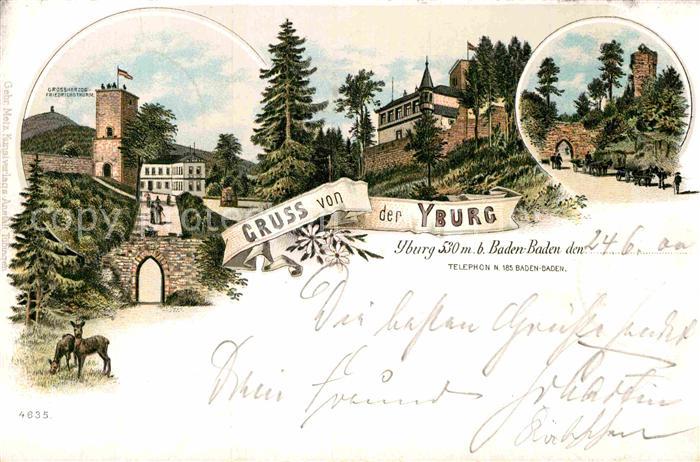 GROSSHERZOG
FRIEDRICHSTHURM.
GRUSS von der YBURG
Yburg 530 m. b. Baden-Baden den 24.6.00
TELEPHON N. 185 BADEN-BADEN.
Die besten Grüße sendet
Dein Freund
4635.
Gebr. Metz, Kunstverlags-Anstalt, Tübingen